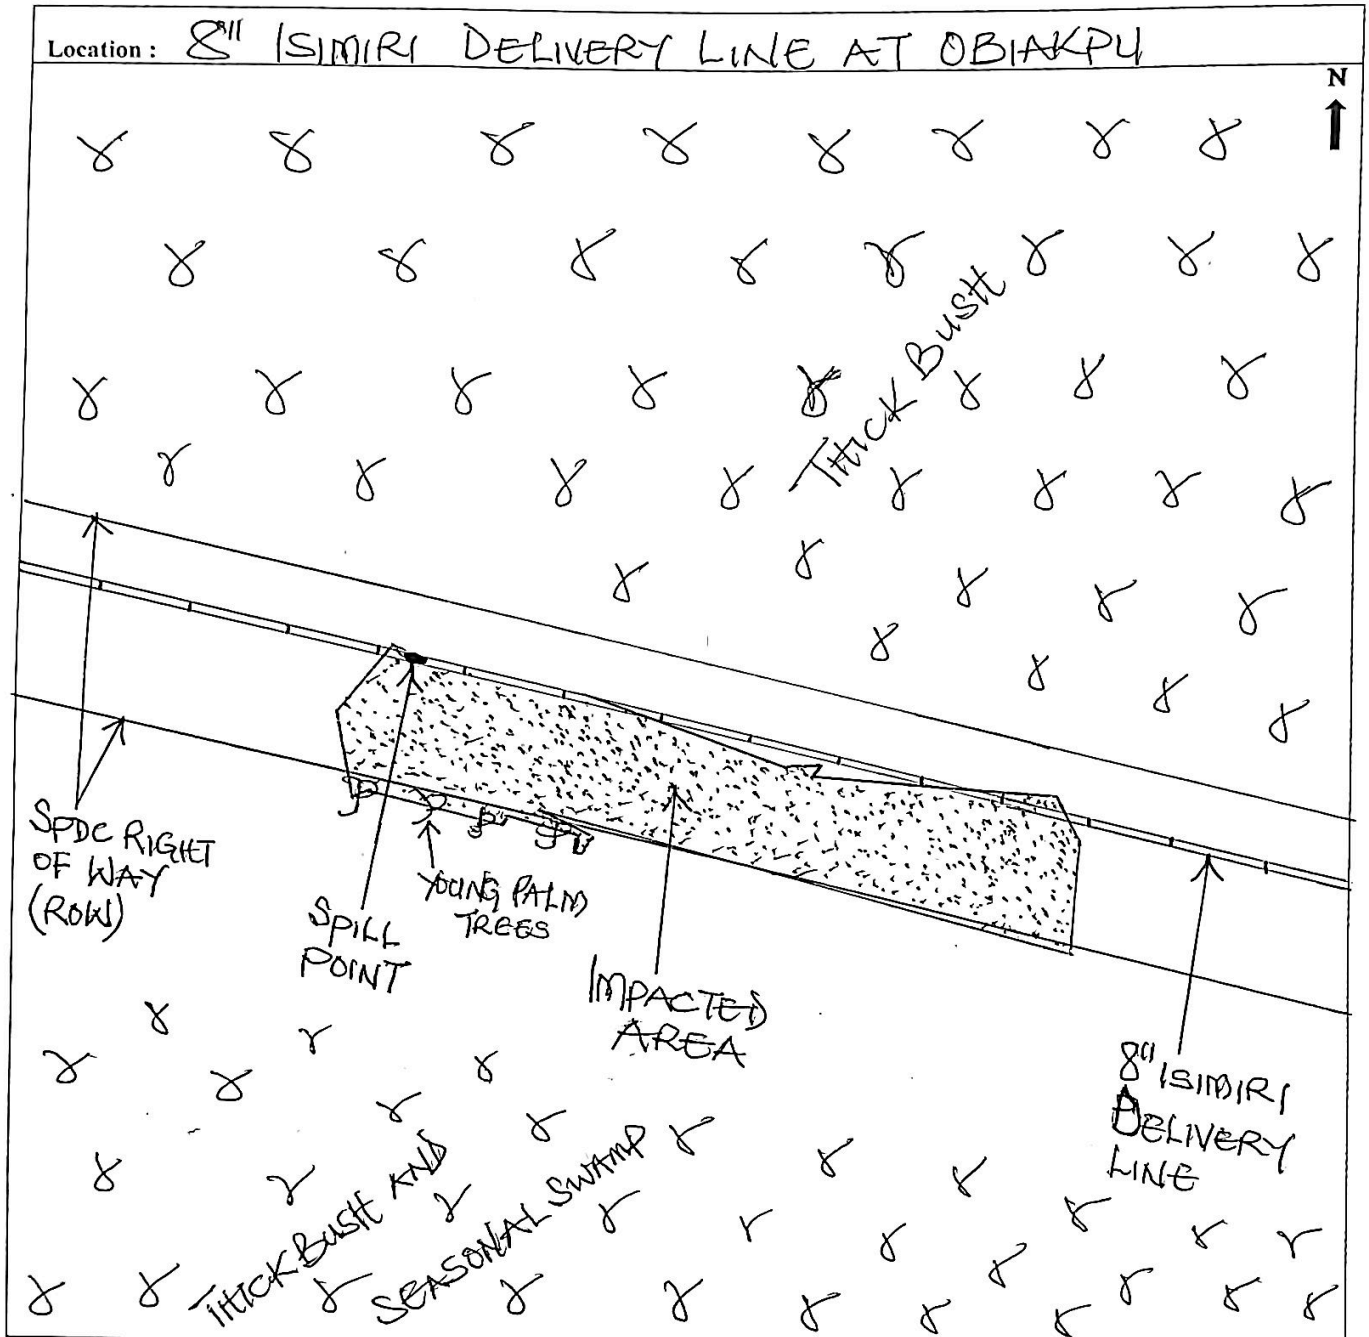 Location : 8" ISIMIRI DELIVERY LINE AT OBIAKPU
N
THICK BUSH
SPDC RIGHT
OF WAY
(ROW)
SPILL
POINT
YOUNG PALM
TREES
IMPACTED
AREA
8" ISIMIRI
DELIVERY
LINE
THICK BUSH AND
SEASONAL SWAMP